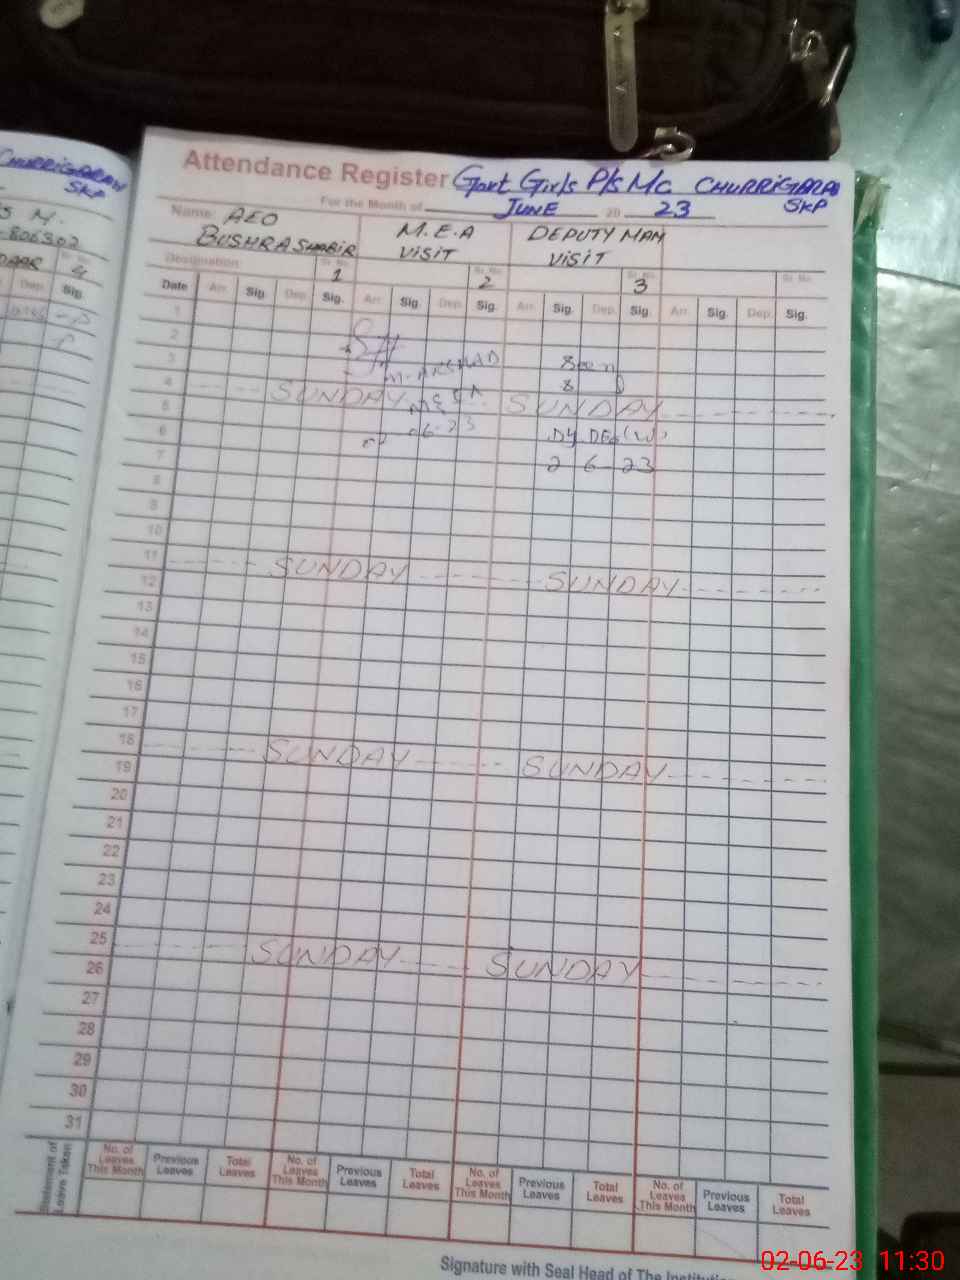 CHURRIGARAH
SKP
S M.
-806302
DAAR
4
Dep.
Sig.
Attendance Register Govt Girls P/s Mc CHURRIGARA
SKP
For the Month of JUNE 20 23
Name: AEO
BUSHRA SHABIR
M.E.A
VISIT
DEPUTY MAM
VISIT
Designation
Sr. No. 1
Sr. No. 2
Sr. No. 3
Sr. No.
Date Arr. Sig. Dep. Sig. Arr. Sig. Dep. Sig. Arr. Sig. Dep. Sig. Arr. Sig. Dep. Sig.
1
2
3 M. ARSHAD Seen
4 SUNDAY MEEA
5 SUNDAY
6 06-23 Dy DEO (W)
7 2 6-23
8
9
10
11 SUNDAY
12 SUNDAY
13
14
15
16
17
18 SUNDAY
19 SUNDAY
20
21
22
23
24
25 SUNDAY
26 SUNDAY
27
28
29
30
31
Statement of Leave Taken
No. of Leaves This Month Previous Leaves Total Leaves No. of Leaves This Month Previous Leaves Total Leaves No. of Leaves This Month Previous Leaves Total Leaves No. of Leaves This Month Previous Leaves Total Leaves
Signature with Seal Head of The Institution
02-06-23 11:30